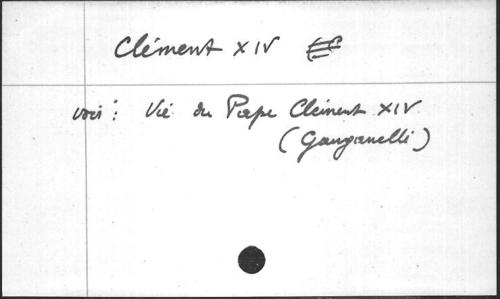 Clément XIV
voir : Vie du Pape Clément XIV
(Ganganelli)